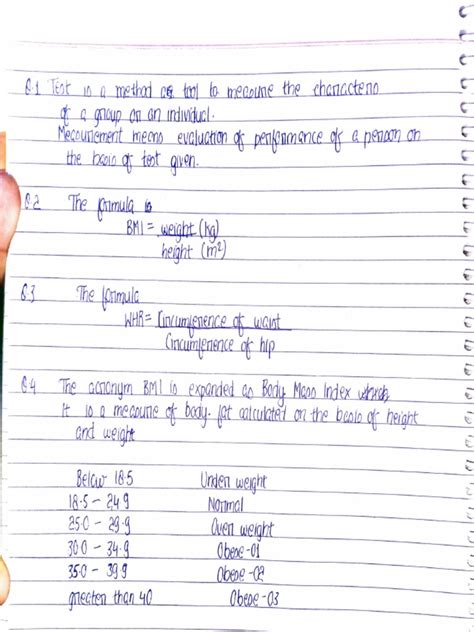 Q.1 Test is a method or tool to measure the characters
of a group or an individual.
Mecsurement means evaluation of performance of a person on
the basis of test given.
Q.2 The formula is
BMI = weight (kg)
height (m²)
Q.3 The formula
WHR = Circumference of waist
Circumference of hip
Q.4 The acronym BMI is expanded as Body Mass Index which
It is a measure of body fat calculated on the basis of height
and weight
Below 18.5 Under weight
18.5 – 24.9 Normal
25.0 – 29.9 Over weight
30.0 – 34.9 Obese -01
35.0 – 39.9 Obese -02
greater than 40 Obese -03